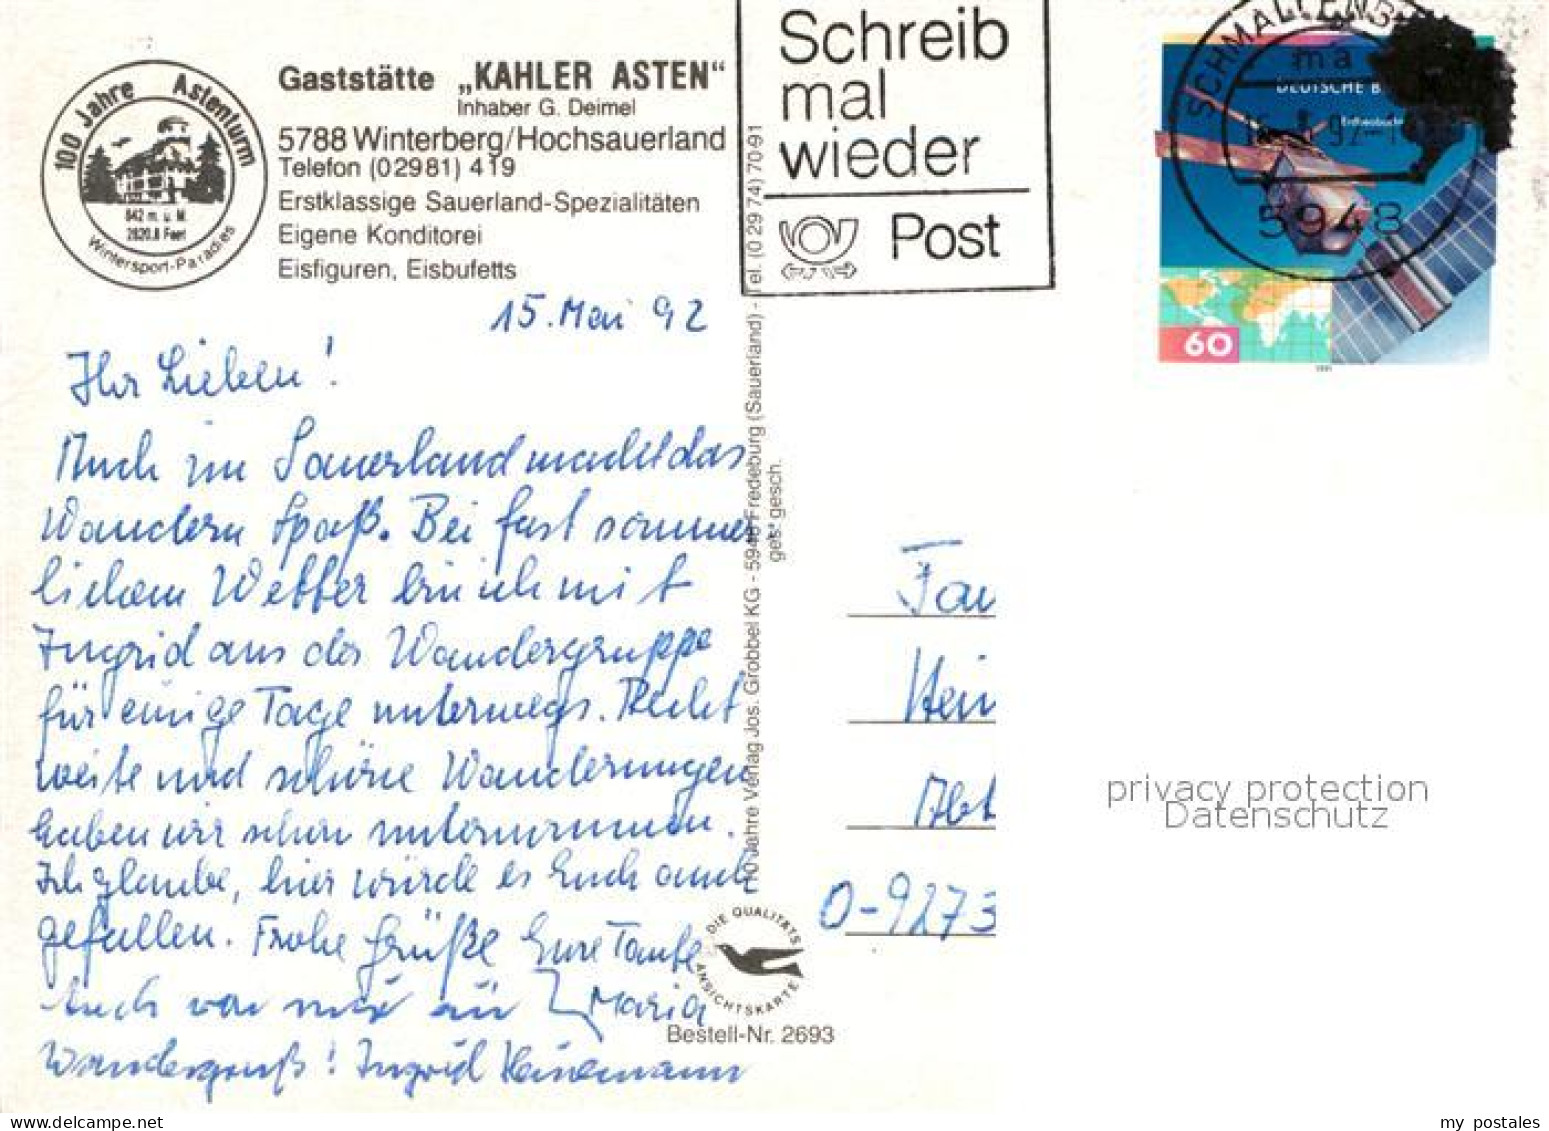 100 Jahre Astenturm
842 m. ü. M.
2620.8 Feet
Wintersport-Paradies
Gaststätte „KAHLER ASTEN“
Inhaber G. Deimel
5788 Winterberg/Hochsauerland
Telefon (02981) 419
Erstklassige Sauerland-Spezialitäten
Eigene Konditorei
Eisfiguren, Eisbufetts
Schreib
mal
wieder
Post
SCHMALLENB
ma
DEUTSCHE B
5948
60
1991
15. Mai 92
Ihr Lieben!
Auch im Sauerland macht das
Wandern Spaß. Bei fast sommer
lichem Wetter bin ich mit
Ingrid aus der Wandergruppe
für einige Tage unterwegs. Recht
weite und schöne Wanderungen
haben wir schon unternommen.
Ich glaube, hier würde es Euch auch
gefallen. Frohe Grüße Eure Tante
Maria
Auch von mir ein
Wandergruß! Ingrid Heinemann
110 Jahre Verlag Jos. Grobbel KG - 5948 Fredeburg (Sauerland) - Tel. (0 29 74) 70 91
ges. gesch.
DIE QUALITÄTS
ANSICHTSKARTE
Bestell-Nr. 2693
Fam
Hein
Abt
O-9273
privacy protection
Datenschutz
my postales